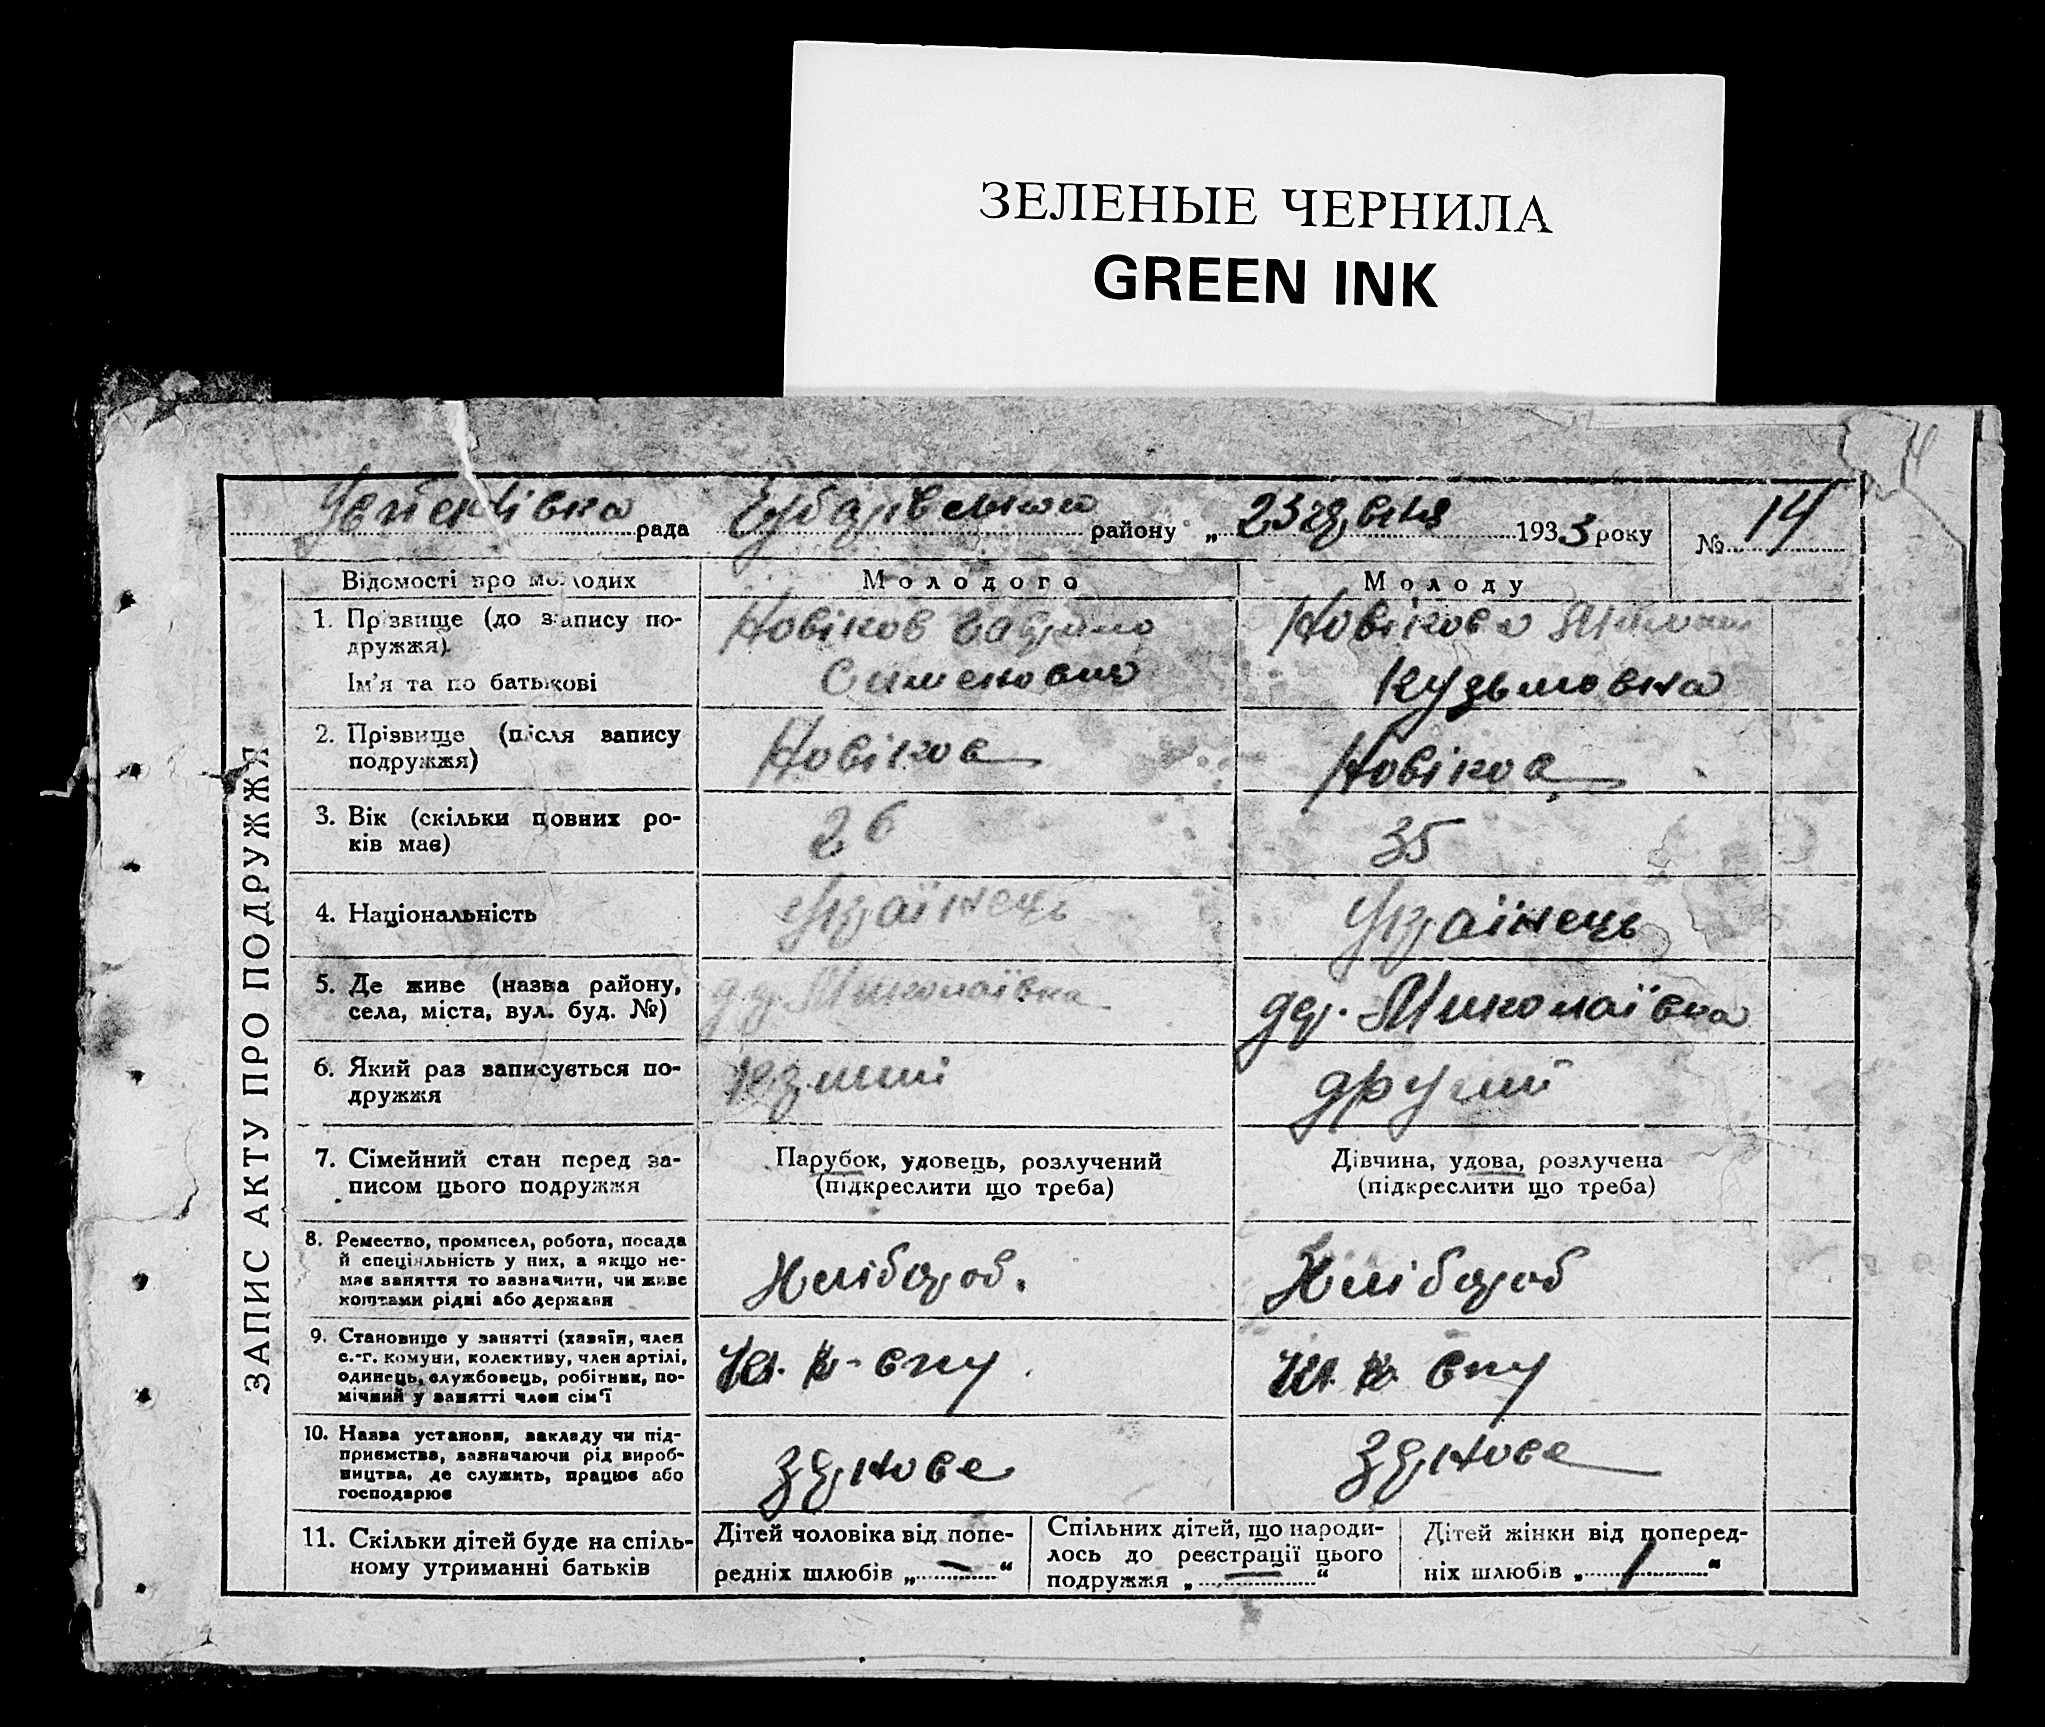 ЗЕЛЕНЫЕ ЧЕРНИЛА
GREEN INK
14
рада району „ 23 1933 року № 14
ЗАПИС АКТУ ПРО ПОДРУЖЖЯ
Відомості про молодих Молодого Молоду
1. Прізвище (до запису по- Новіков Новікова
дружжя)
Ім'я та по батькові Кузьмовна
2. Прізвище (після запису Новіков Новікова
подружжя)
3. Вік (скільки повних ро- 26 35
ків має)
4. Національність Українець Українець
5. Де живе (назва району, Миколаївка др. Миколаївка
села, міста, вул. буд. №)
6. Який раз записується по- другий
дружжя
7. Сімейний стан перед за- Парубок, удовець, розлучений Дівчина, удова, розлучена
писом цього подружжя (підкреслити що треба) (підкреслити що треба)
8. Ремество, промисел, робота, посада
й спеціяльність у них, а якщо не-
має заняття то зазначити, чи живе Хлібороб. Хлібороб
коштами рідні або держави
9. Становище у занятті (хазяїн, член
с.-г. комуни, колективу, член артілі,
одинець, службовець, робітник, по-
мічний у занятті член сім'ї
10. Назва установи, закладу чи під-
приємства, зазначаючи рід вироб-
ництва, де служить, працює або
господарює
11. Скільки дітей буде на спіль- Дітей чоловіка від попе- Спільних дітей, що народи- Дітей жінки від поперед-
ному утриманні батьків редніх шлюбів „ — “ лось до реєстрації цього ніх шлюбів „ / “
подружжя „ — “